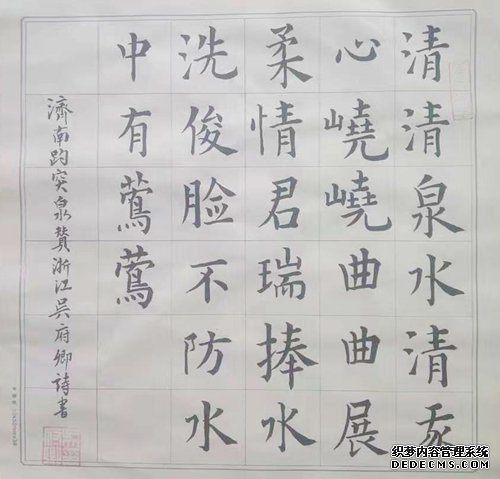 清清泉水清我
心嶢嶢曲曲展
柔情君瑞捧水
洗俊脸不防水
中有鶯鶯
濟南趵突泉贊浙江吳府卿詩書
织梦内容管理系统
DEDECMS.COM